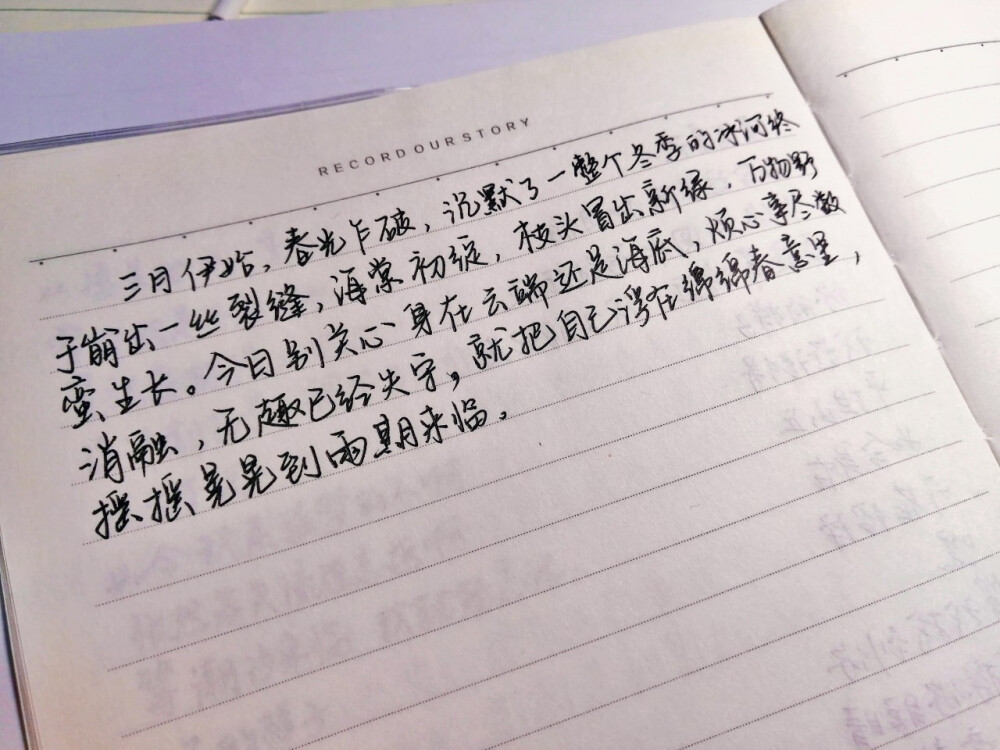 RECORD OUR STORY
三月伊始，春光乍破，沉默了一整个冬季的冰河终
于崩出一丝裂缝，海棠初绽，枝头冒出新绿，万物野
蛮生长。今日别关心身在云端还是海底，烦心事尽数
消融，无趣已经失守，就把自己浮在绵绵春意里，
摇摇晃晃到雨期来临。